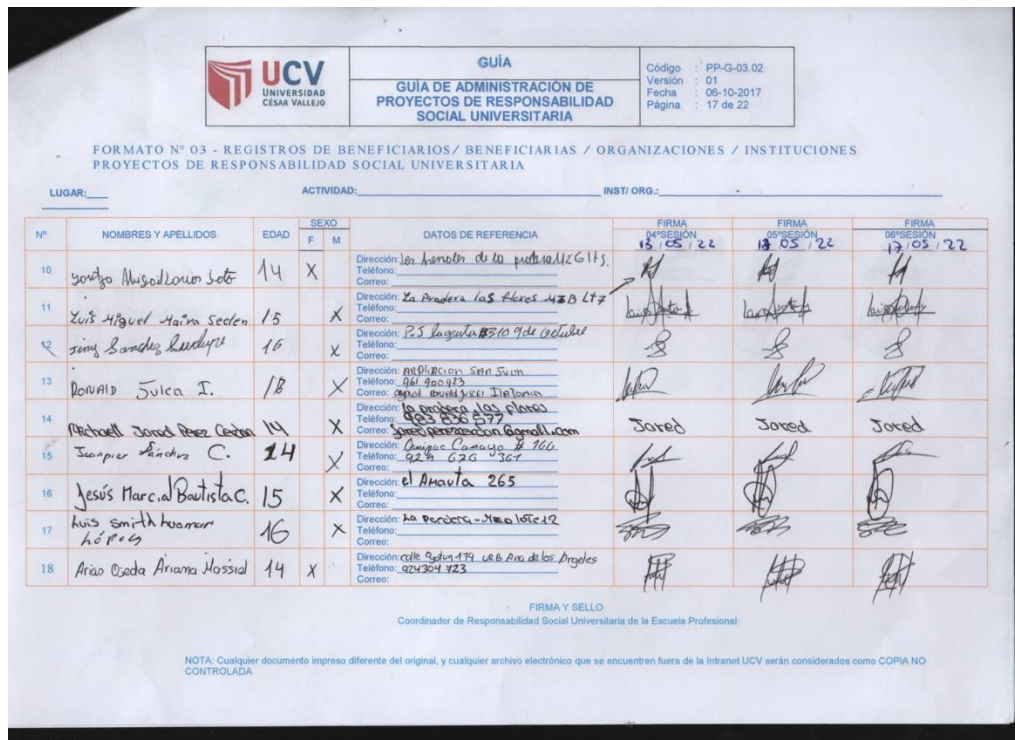 UCV
UNIVERSIDAD
CÉSAR VALLEJO
GUÍA
GUÍA DE ADMINISTRACIÓN DE
PROYECTOS DE RESPONSABILIDAD
SOCIAL UNIVERSITARIA
Código : PP-G-03.02
Versión : 01
Fecha : 06-10-2017
Página : 17 de 22
FORMATO Nº 03 - REGISTROS DE BENEFICIARIOS/ BENEFICIARIAS / ORGANIZACIONES / INSTITUCIONES
PROYECTOS DE RESPONSABILIDAD SOCIAL UNIVERSITARIA
LUGAR: ACTIVIDAD: INST/ ORG.:
Nº NOMBRES Y APELLIDOS EDAD SEXO F M DATOS DE REFERENCIA FIRMA 04ºSESIÓN FIRMA 05ºSESIÓN FIRMA 06ºSESIÓN
13/05/22 05/22 17/05/22
10 Soto 14 X Dirección: Los de la
Teléfono:
Correo:
11 Luis Miguel 15 X Dirección: La Pradera las flores Lt7
Teléfono:
Correo:
12 Jimy Sanchez 16 X Dirección: P.S #310 9 de Octubre
Teléfono:
Correo:
13 RONALD Julca I. 18 X Dirección: AMPLIACION SAN Juan
Teléfono: 961 900 423
Correo:
14 Michaell Jared Perez 14 X Dirección: la pradera las flores
Teléfono:
Correo: @gmail.com
Jared Jared Jared
15 Jeanpier Sánchez C. 14 X Dirección: Enrique Camayo # 166
Teléfono: 924 626 361
Correo:
16 Jesús Marcial Bautista C. 15 X Dirección: el Amauta 265
Teléfono:
Correo:
17 Luis smith huaman 16 X Dirección: La
López Teléfono:
Correo:
18 Arias Ojeda Ariana 14 X Dirección: calle 179 URB Ana de los Angeles
Teléfono: 924304723
Correo:
FIRMA Y SELLO
Coordinador de Responsabilidad Social Universitaria de la Escuela Profesional
NOTA: Cualquier documento impreso diferente del original, y cualquier archivo electrónico que se encuentren fuera de la Intranet UCV serán considerados como COPIA NO
CONTROLADA